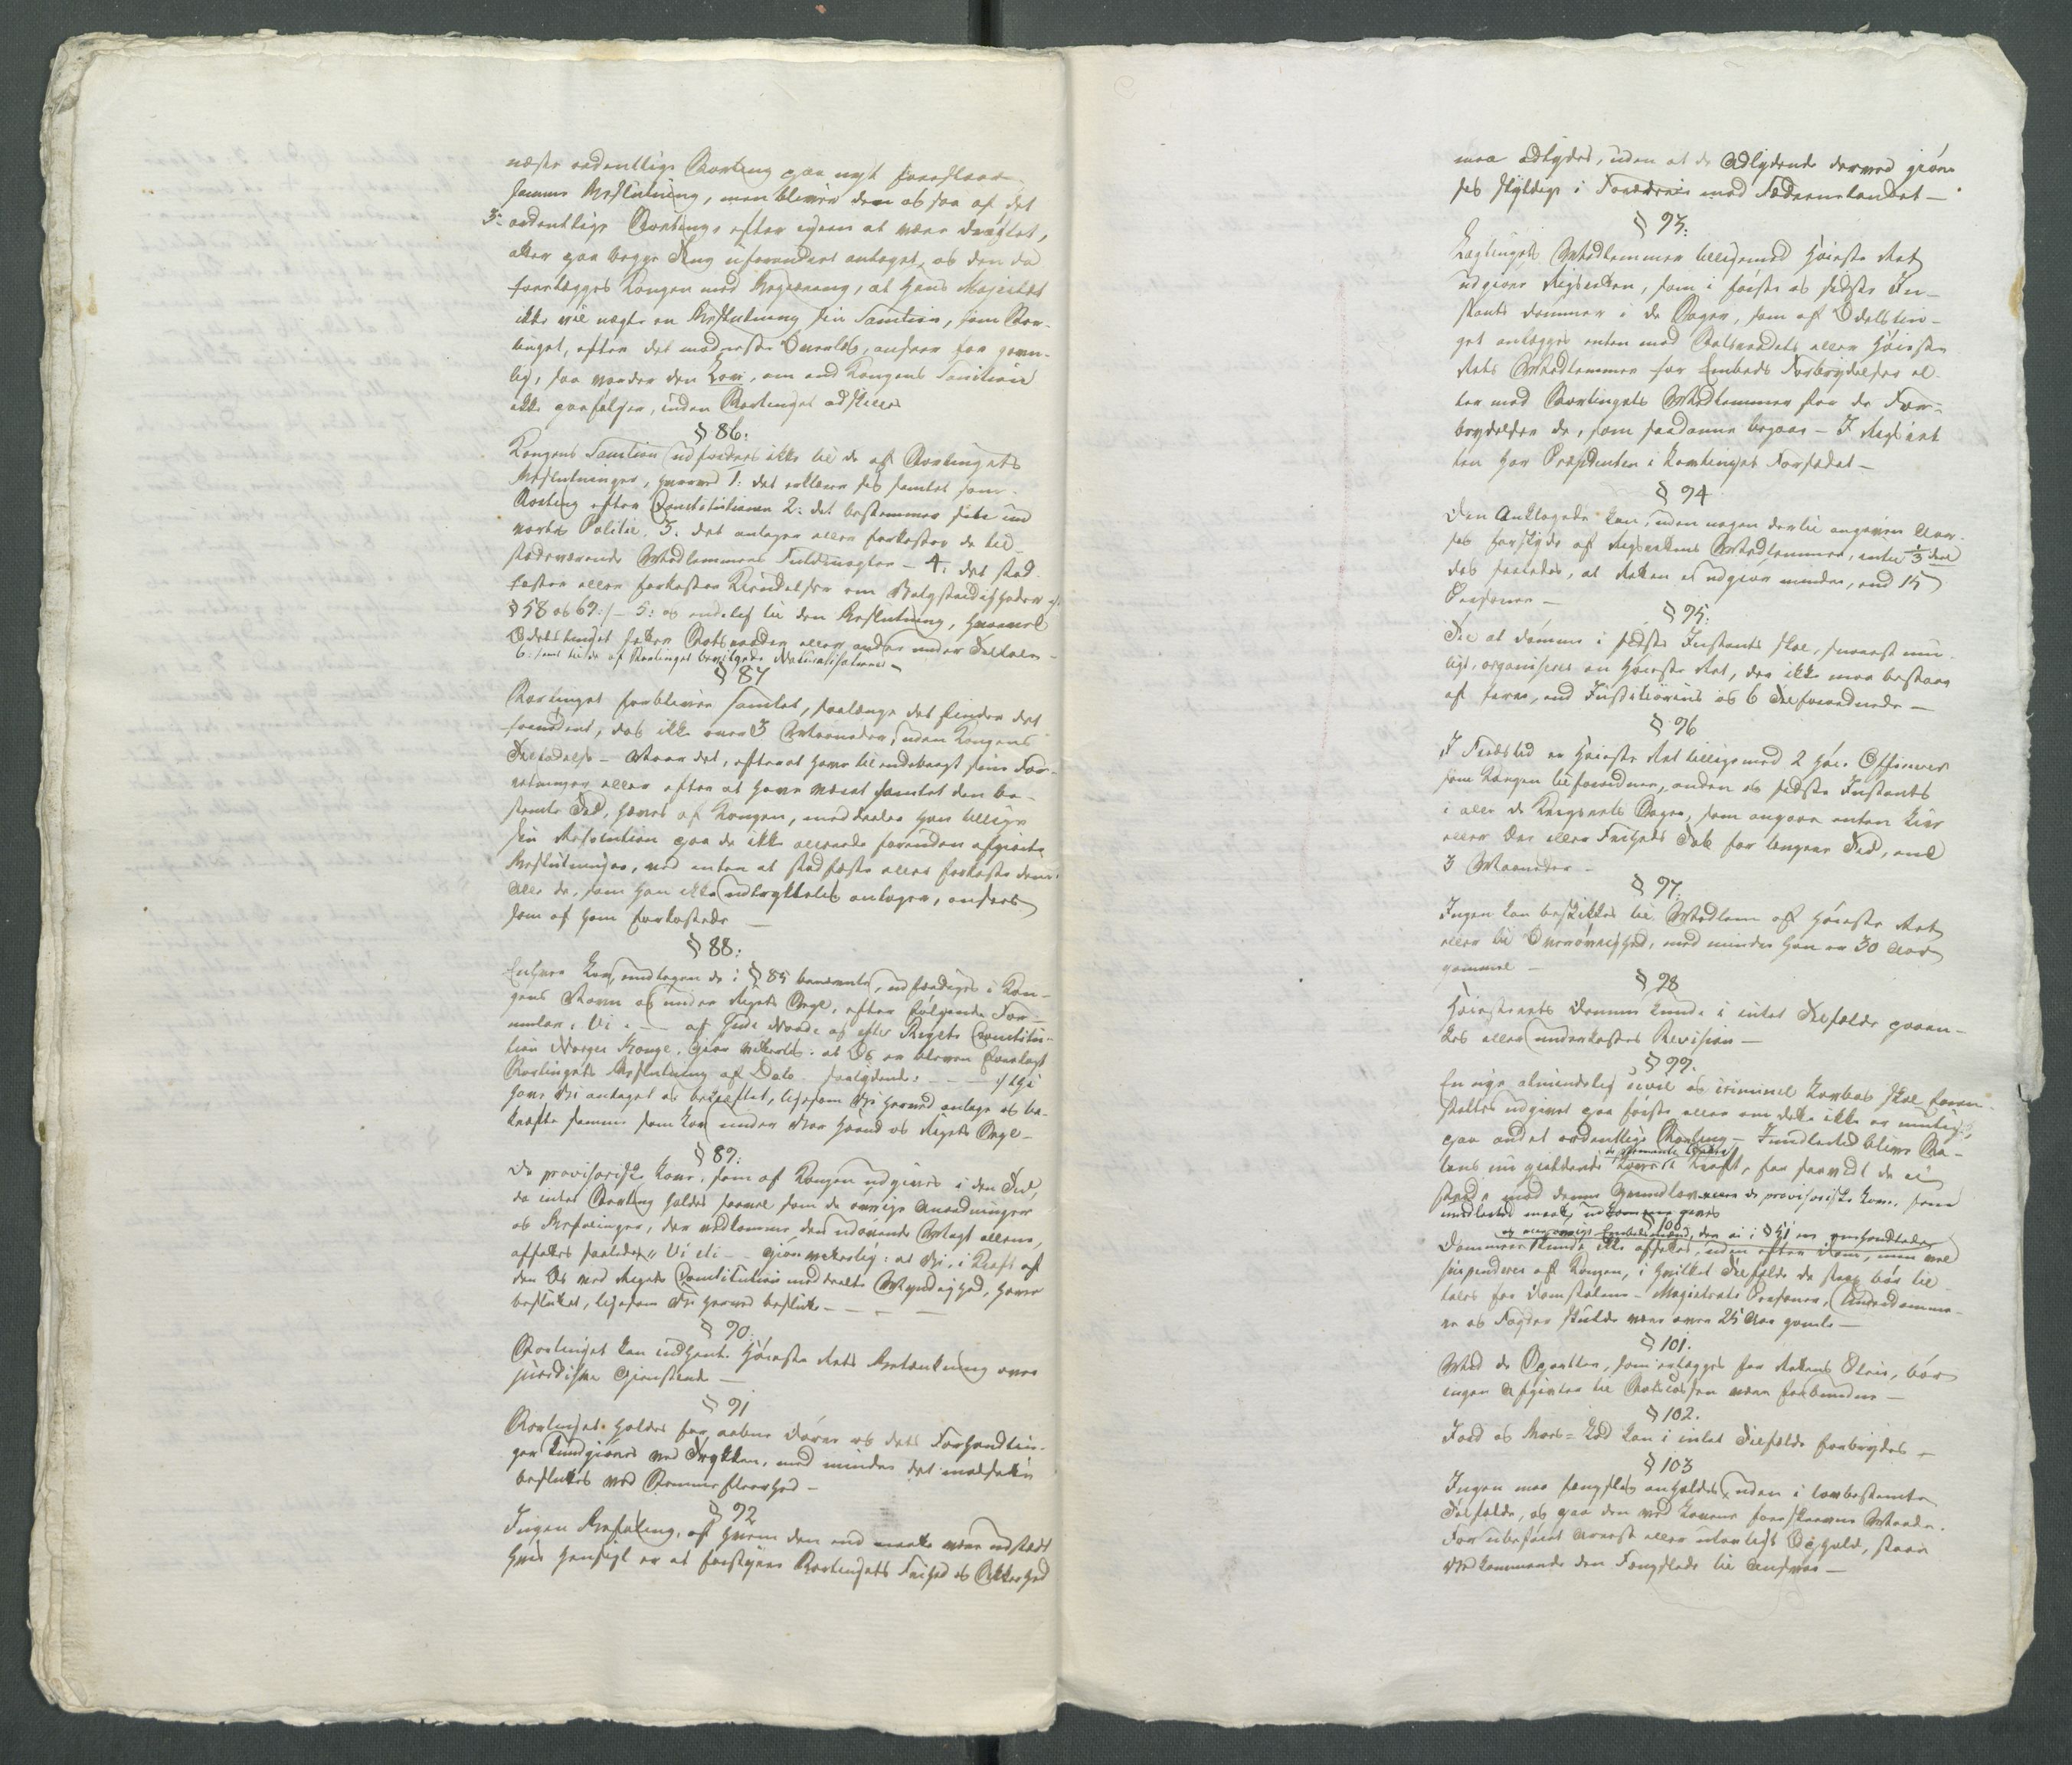 næste ordentlige Storting paa nyt foreslaaes
samme Beslutning, men bliver den og saa af det
3: ordentlige Storting efter igien at være drøftet,
atter paa begge Ting uforandret antaget, og den da
forelægges Kongen med Begiæring, at Hans Majestæt
ikke vil nægte en Beslutning sin Sanction, som Stor-
tinget, efter det modneste Overlæg, anseer for gavn-
lig; saa vorder den Lov, om end Kongens Sanction
ikke paafølger, inden Stortinget adskilles
§ 86:
Kongens Sanction udfordres ikke til de af Stortingets
Beslutninger, hvorved 1: det erklærer sig samlet som
Storting efter Constitutionen 2: det bestemmer sit ind
vortes Politie, 3: det antager eller forkaster de til-
stedeværende Medlemmers Fuldmagter – 4: det stad-
fæster eller forkaster Kiendelser om Valgstridigheder
§ 58 og 69: – 5: og endelig til den Beslutning, hvorved
Odelstinget sætter Statsraader eller andre under Tiltale –
6: samt til de af Stortinget bevilgede Naturalisationer –
§ 87
Stortinget forbliver samlet, saalænge det finder det
fornødent, dog ikke over 3 Maaneder, uden Kongens
Tilladelse – Naar det, efterat have tilendebragt sine For-
retninger eller efter at have været samlet den be-
stemte Tid, hæves af Kongen, meddeeler han tillige
sin Resolution paa de ikke allerede forinden afgiorte
Beslutninger, ved enten at stadfæste eller forkaste dem.
Alle de, som han ikke udtrykkelig antager, ansees
som af ham forkastede –
§ 88:
Enhver Lov, undtagen de i § 85 benævnte, udfærdiges i Kon-
gens Navn og under Rigets Segl, efter følgende For-
mular: Vi – – af Guds Naade og efter Rigets Constitu-
tion Norges Konge, giør vitterligt: at Os er bleven forelagt
Stortingets Beslutning af Dato saalydende: – – –
have Vi antaget og bekræftet, ligesom Vi herved antage og be-
kræfte samme som Lov under Vor Haand og Rigets Segl –
§ 89:
De provisoriske Love, som af Kongen udgives i den Tid,
da intet Storting holdes saavel som de øvrige Anordninger
og Befalinger, der vedkomme den udøvende Magt allene,
affattes saaledes: Vi etc – – giøre vitterlig: at Vi, i Kraft af
den Os ved Rigets Constitution meddeelte Myndighed, have
besluttet, ligesom Vi herved beslutte – – – –
§ 90:
Stortinget kan indhente Høieste Rets Betænkning over
juridiske Gienstande –
§ 91
Stortinget holdes for aabne Døre og dets Forhandlin-
ger kundgiøres ved Trykken, med mindre det modsatte
besluttes ved Stemmefleerhed –
§ 92
Ingen Befaling, af hvem den end maatte være udstædt
hvis Hensigt er at forstyrre Stortingets Frihed og Sikkerhed
maa adlydes, uden at de Adlydende derved giøre
sig skyldige i Forræderie mod Fædernelandet –
§ 93:
Lagtingets Medlemmer tilligemed Høieste Ret
udgiøre Rigsretten, som i første og sidste In-
stants dømmer i de Sager, som af Odelstin-
get anlægges enten mod Statsraadets eller Høieste
Rets Medlemmer for Embeds Forbrydelser el-
ler mod Stortingets Medlemmer for de For-
brydelser de, som saadanne begaae – I Rigsret
ten har Præsidenten i Lagtinget Forsædet –
§ 94
Den Anklagede kan, uden nogen dertil angiven Aar-
sag forskyde af Rigsrettens Medlemmer, indtil 1/3 deel
dog saaledes, at Retten ei udgiør mindre, end 15
Personer –
§ 95:
Til at dømme i sidste Instants skal, snarest mu-
ligt, organiseres en Høieste Ret, der ikke maa bestaae
af færre, end Justitiarius og 6 Tilforordnede –
§ 96
I Fredstid er Høieste Ret tilligemed 2 høie Officierer
som Kongen tilforordner, anden og sidste Instants
i alle de Krigsrets Sager, som angaae enten Liv
eller Ære eller Friheds Tab for længere Tid, end
3 Maaneder –
§ 97:
Ingen kan beskikkes til Medlem af Høieste Ret
eller til Overøvrighed, med mindre han er 30 Aar
gammel –
§ 98
Høiesterets Domme kunde i intet Tilfælde paaan-
kes eller underkastes Revision –
§ 99.
En nye almindelig civil og criminel Lovbog skal foran-
staltes udgivet paa første eller om dette ikke er mueligt,
paa andet ordentlige Storting – Imidlertid blive Sta-
tens nu gieldende Love i Kraft, for saavidt de ei
stride mod denne Grundlov eller de provisoriske Love, som
imidlertid maatte udkomme gives
§ 100
og øvrige Embedsmænd, der ei i § 51 ere omhandlede
Dommere kunde ikke afsættes, uden efter Dom, men vel
suspenderes af Kongen, i hvilket Tilfælde de strax bør til-
tales for Domstolene – Magistrats Personer, Underdomme-
re og Fogder skulde være over 25 Aar gamle –
§ 101.
Med de Sportler, som erlægges for Rettens Pleie, bør
ingen Afgivter til Statscassen være forbundne –
§ 102.
Jord og Boes-Lod kan i intet Tilfælde forbrydes –
§ 103
Ingen maa fængslig anholdes, uden i lovbestemte
Tilfælde, og paa den ved Lovene foreskrevne Maade.
For ubeføiet Arrest eller ulovligt Ophold, staaer
Vedkommende den Fængslede til Ansvar –